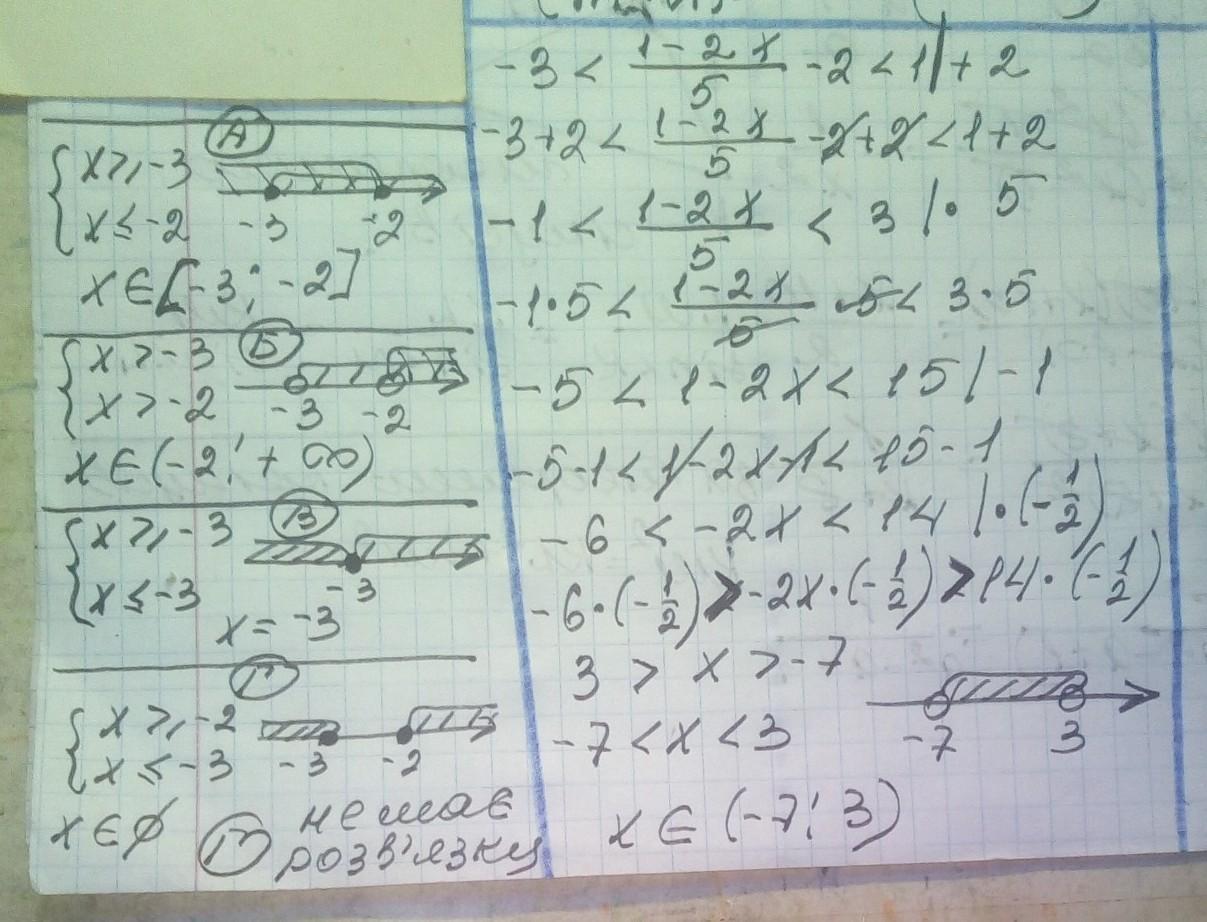 А
{ x ≥ -3
x ≤ -2
-3 -2
x ∈ [-3; -2]
Б
{ x > -3
x > -2
-3 -2
x ∈ (-2; + ∞)
В
{ x ≥ -3
x ≤ -3
-3
x = -3
Г
{ x ≥ -2
x ≤ -3
-3 -2
x ∈ ∅ Г немає
розв'язку
-3 < (1-2x)/5 -2 < 1 | + 2
-3+2 < (1-2x)/5 -2+2 < 1+2
-1 < (1-2x)/5 < 3 | · 5
-1·5 < (1-2x)/5 ·5 < 3·5
-5 < 1-2x < 15 | -1
-5-1 < 1-2x-1 < 15-1
-6 < -2x < 14 | · (-1/2)
-6·(-1/2) > -2x·(-1/2) > 14·(-1/2)
3 > x > -7
-7 < x < 3
-7 3
x ∈ (-7; 3)